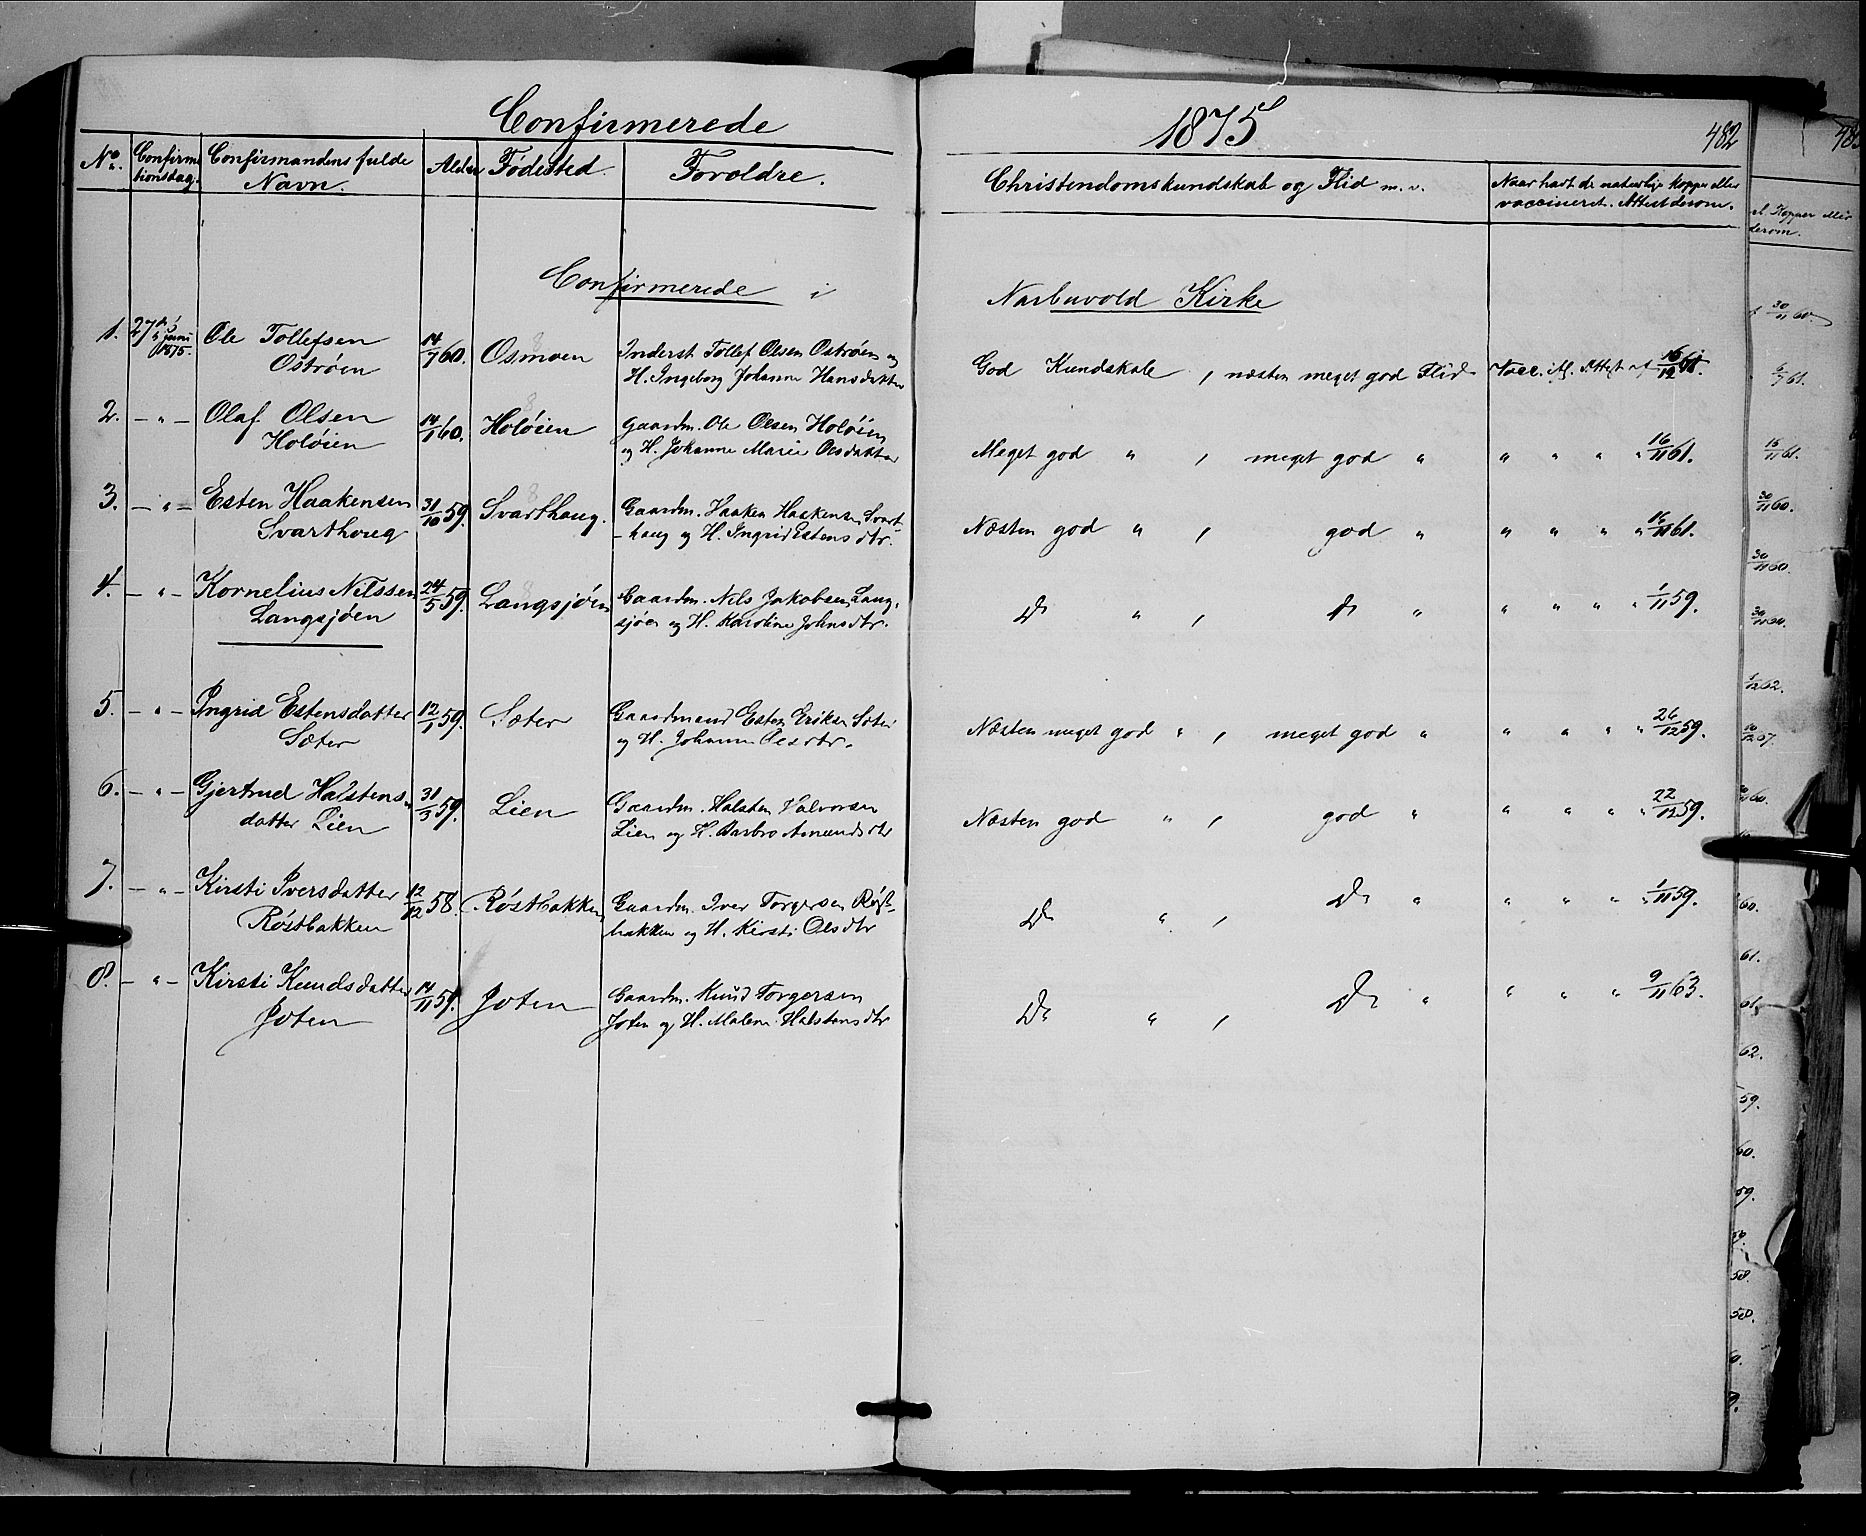 Confirmerede
1875
482
No. Confirmationsdag. Confirmandens fulde Navn. Alder Fødested. Foroldre. Christendomskundskab og Flid m.v. Naar havt de naturlige Kopper eller vaccineret. Attest derom.
Confirmerede i Narbuvold Kirke
1. 27de Juni 1875. Ole Tollefsen Ostrøen 14/7 60. Osmoen Inderst Tollef Olsen Ostrøen og H. Ingeborg Johanne Hansdatter God Kundskab, næsten meget god Flid Vacc. Attest af 16/12 61.
2. — " — Olaf Olsen Holøien 14/1 60. Holøien Gaardm. Ole Olsen Holøien og H. Johanne Marie Olsdatter Meget god " , meget god " " " " " 16/11 61.
3. — " — Esten Haakensen Svarthoug 31/10 59. Svarthaug. Gaardm. Haaken Haakensen Svart-haug og H. Ingrid Estensdtr. Næsten god " , god " " " " " 16/11 61.
4. — " — Kornelius Nilssen Langsjøen 24/5 59. Langsjøen Gaardm. Nils Jakobsen Langsjøen og H. Karoline Johnsdtr. Do " , Do " " " " " 1/11 59.
5. — " — Ingrid Estensdatter Sæter 12/1 59. Sæter Gaardmand Esten Eriksen Sæter og H. Johanne Olsdtr. Næsten meget god " , meget god " " " " " 26/12 59.
6. — " — Gjertrud Halstensdatter Lien 31/3 59. Lien Gaardm. Halsten Halvorsen Lien og H. Barbro Amundsdtr Næsten god " , god " " " " " 22/12 59.
7. — " — Kirsti Iversdatter Røstbakken 12/12 58. Røstbakken Gaardm. Iver Torgersen Røst-bakken og H. Kirsti Olsdtr Do " , Do " " " " " 1/11 59.
8. — " — Kirsti Knudsdatter Joten 14/11 59. Joten Gaardm. Knud Torgersen Joten og H. Malene Halstensdtr Do " , Do " " " " 9/11 63.